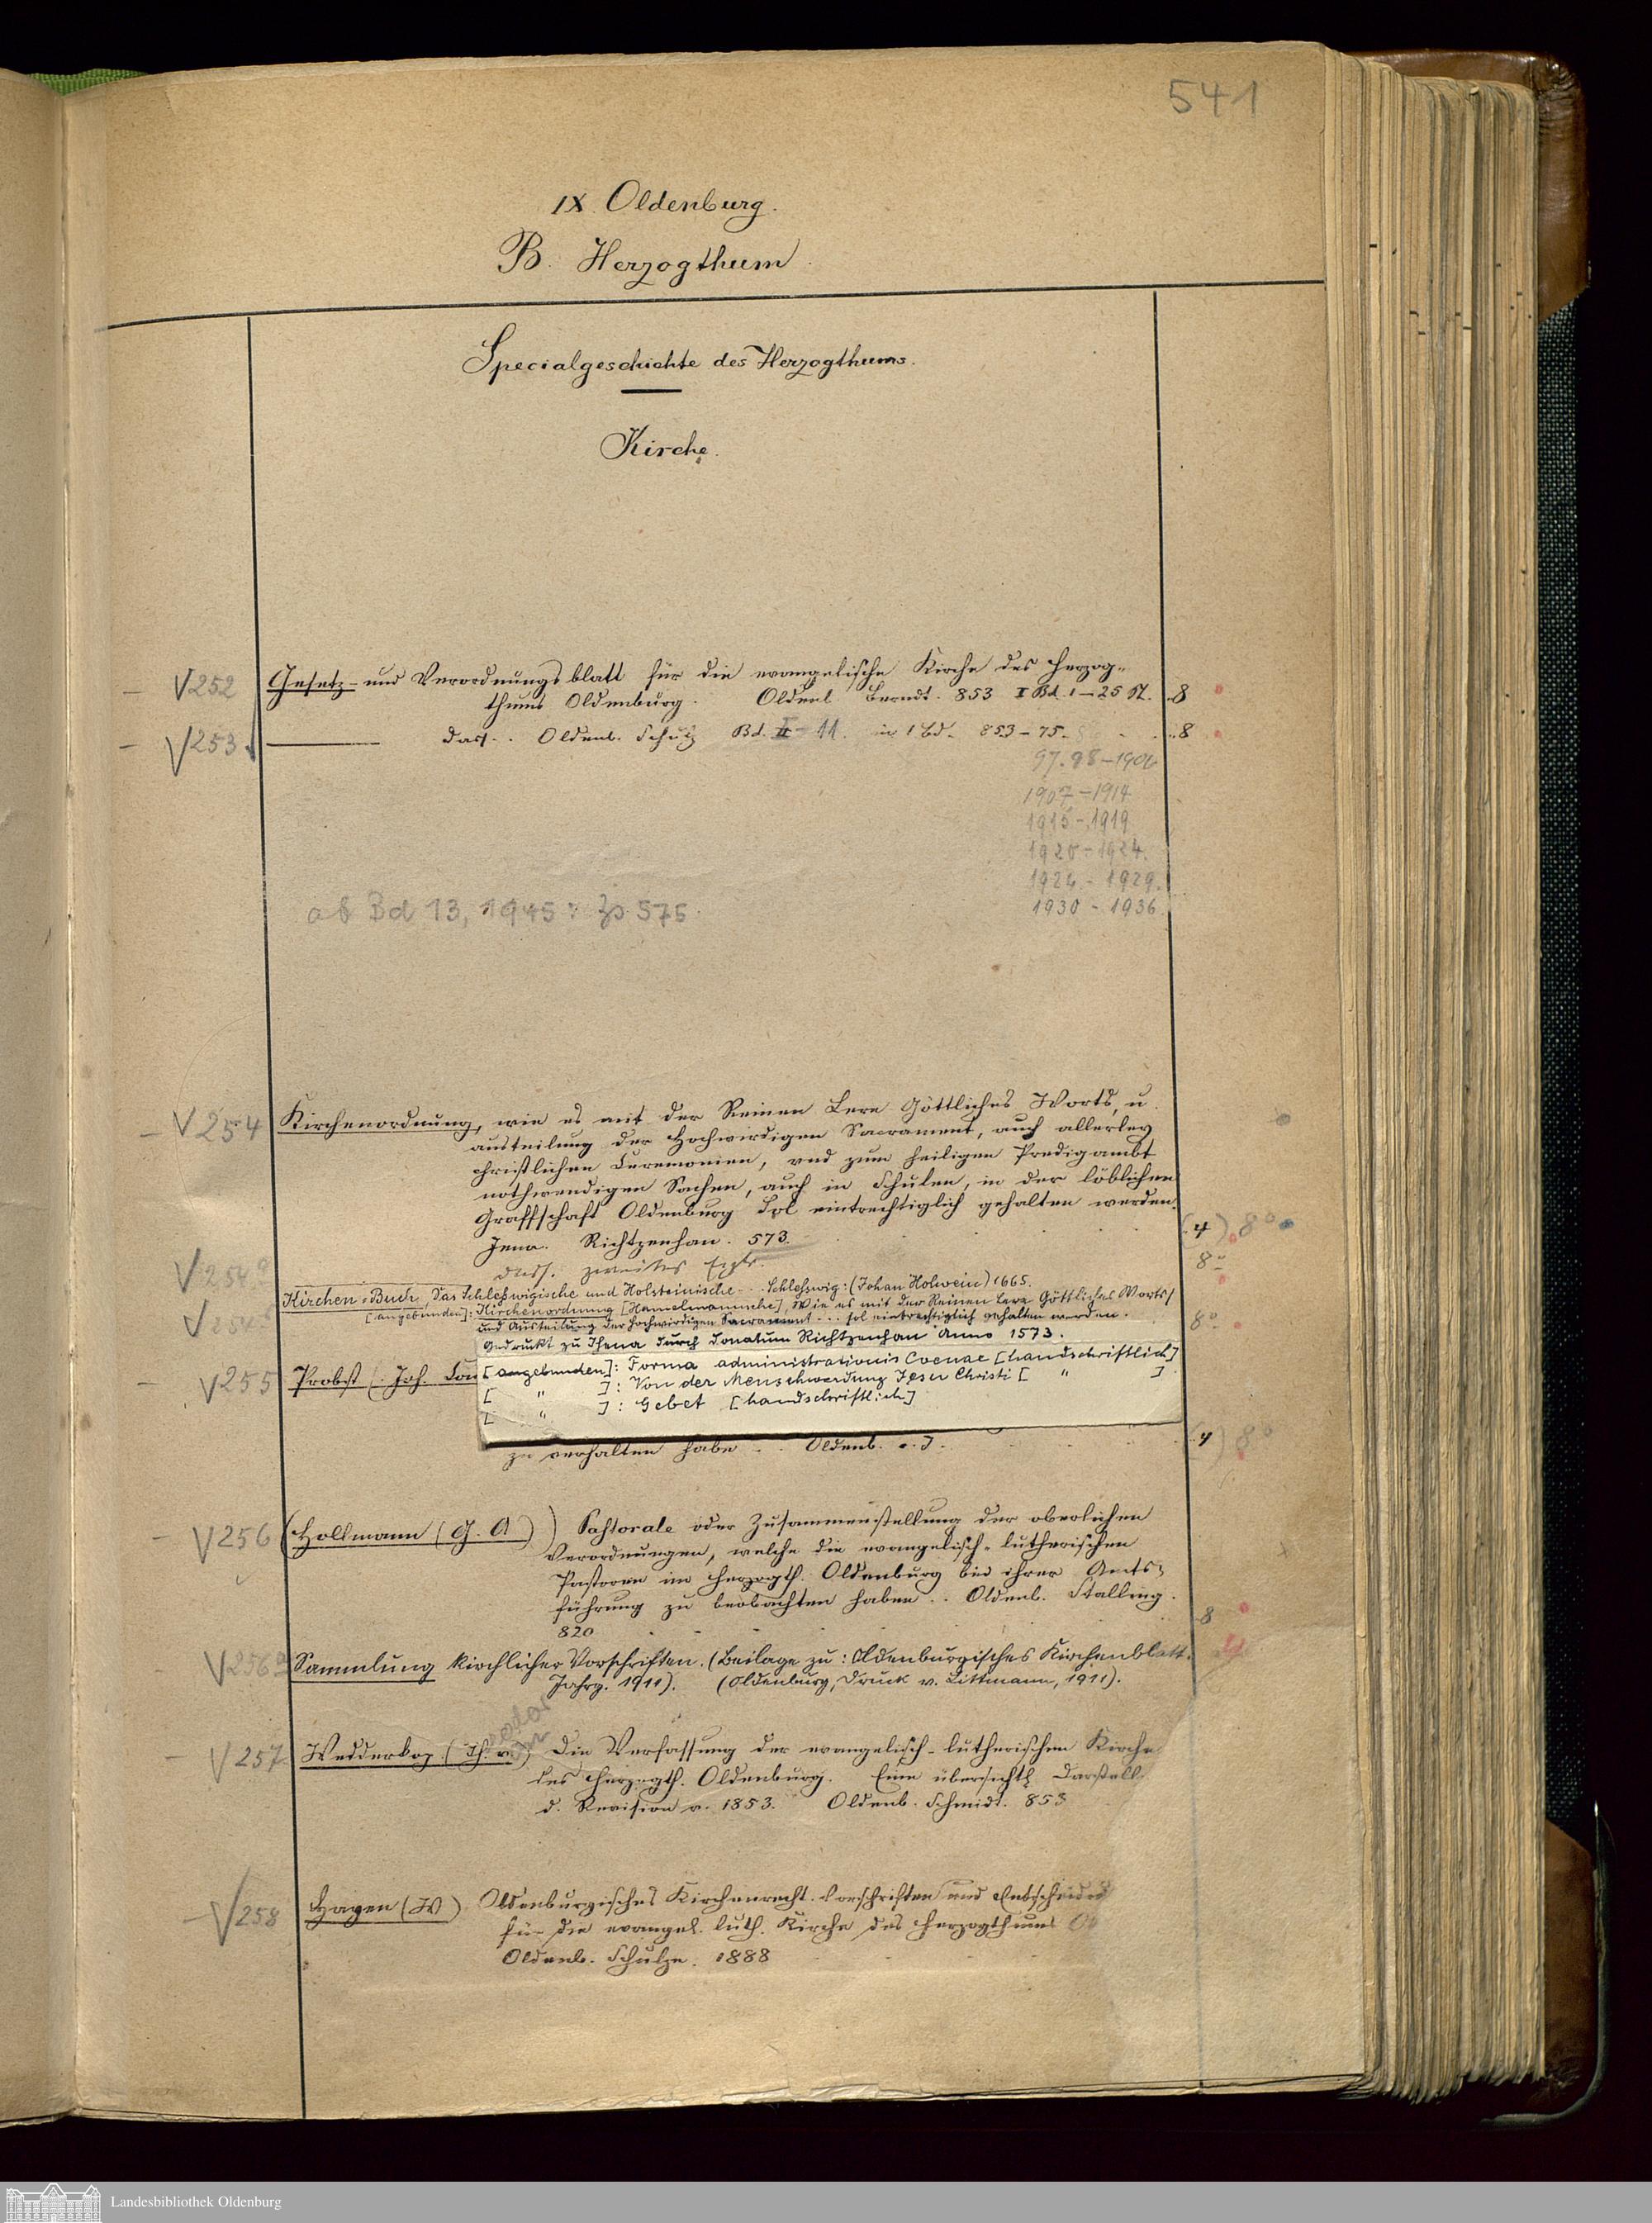 541
IX. Oldenburg.
B. Herzogthum.
Specialgeschichte des Herzogthums.
Kirche.
V252 Gesetz- und Verordnungsblatt für die evangelische Kirche des Herzog-
thums Oldenburg. Oldenb. Berndt. 853 I Bd. 1–25 St. 8
V253 — dass. . Oldenb. Schulz Bd. II – 11. in 1 Bd. 853–75. 8
97.98–1906
1907–1914
1915–1919
1920–1924.
1924–1929.
1930–1936
ab Bd 13, 1945: Zs. 575.
V254 Kirchenordnung, wie es mit der Reinen Lere Göttliches Worts, u.
austeilung der Hochwirdigen Sacrament, auch allerley
christlichen Ceremonien, vnd zum heiligen Predigambt
nothwendigen Sachen, auch in Schulen, in der löblichen
Graffschaft Oldenburg Sol eintrechtiglich gehalten werden.
Jena. Richtzenhan. 573. (4) 8°
V254a dass. zweites Expl. 8°
V254b Kirchen=Buch, Das Schleßwigische und Holsteinische . . . Schleßwig: (Johan Holwein) 1665.
[angebunden]: Kirchenordnung [Hamelmannsche], Wie es mit der Reinen Lere Göttliches Worts/
und Austeilung der Hochwirdigen Sacrament . . . sol eintrechtiglich gehalten werden. 8°
Gedruckt zu Jhena durch Donatum Richtzenhan Anno 1573.
[angebunden]: Forma administrationis Coenae [handschriftlich]
[ " ]: Von der Menschwerdung Jesu Christi [ " ]
[ " ]: Gebet [handschriftlich]
V255 Probst (Joh.
zu verhalten habe . . Oldenb. o. J. (4) 8°
V256 (Hollmann (G. A.)) Pastorale oder Zusammenstellung der oberlichen
Verordnungen, welche die evangelisch-lutherischen
Pastoren im Herzogth. Oldenburg bei ihrer Amts-
führung zu beobachten haben . . Oldenb. Stalling.
820 8
V256a Sammlung kirchlicher Vorschriften. (Beilage zu: Oldenburgisches Kirchenblatt.
Jahrg. 1911). (Oldenburg, Druck v. Littmann, 1911).
V257 Wedderkop (Th. v.) Die Verfassung der evangelisch-lutherischen Kirche
des Herzogth. Oldenburg. Eine übersichtl. Darstell.
d. Revision v. 1853. Oldenb. Schmidt. 853
V258 Hayen (W.) Oldenburgisches Kirchenrecht. Vorschriften und Entscheide
für die evangel. luth. Kirche des Herzogthums
Oldenb. Schulze. 1888
Landesbibliothek Oldenburg